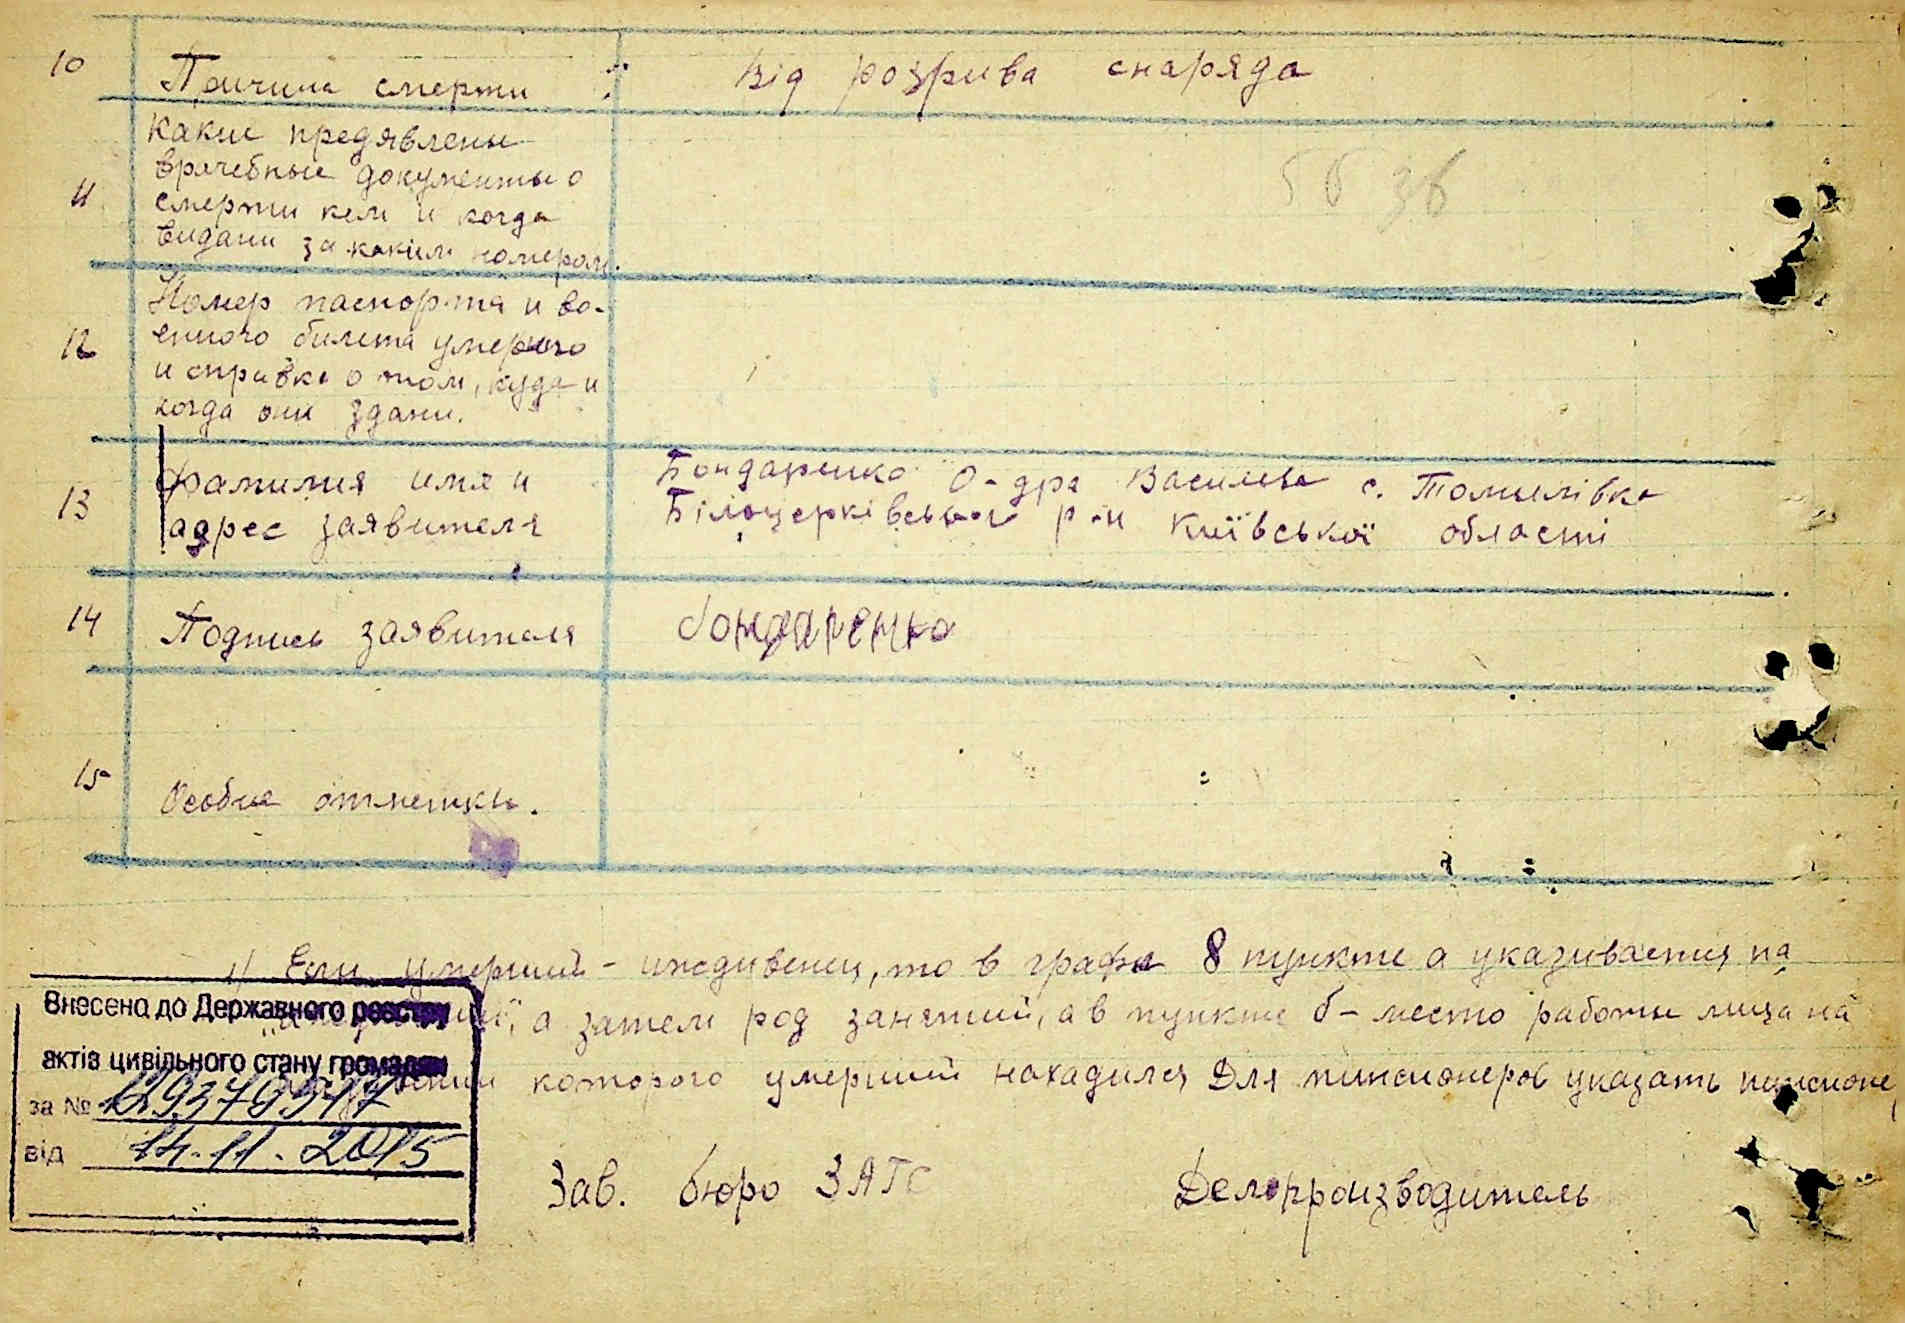 10 Причина смерти : Від розрива снаряда
11 Какие предявлены
врачебные документы о
смерти кем и когда
видани за каким номером.
12 Номер паспорта и во-
енного билета умершего
и справка о том, куда и
когда они здани.
13 Фамилия имя и
адрес заявителя
Бондаренко О-дра Василівна с. Томилівка
Білоцерківського р-н Київської області
14 Подпись заявителя Бондаренко
15 Особые отметки.
1/ Если умерший - иждивенец, то в графе 8 пункте а указивается на
а затем род занятий, а в пункте б - место работы лица на
которого умерший находился Для пинсионеров указать пинсионе
Внесено до Державного реєстру
актів цивільного стану громадян
за №
від 14.11.2015
Зав. бюро ЗАГС Делопроизводитель